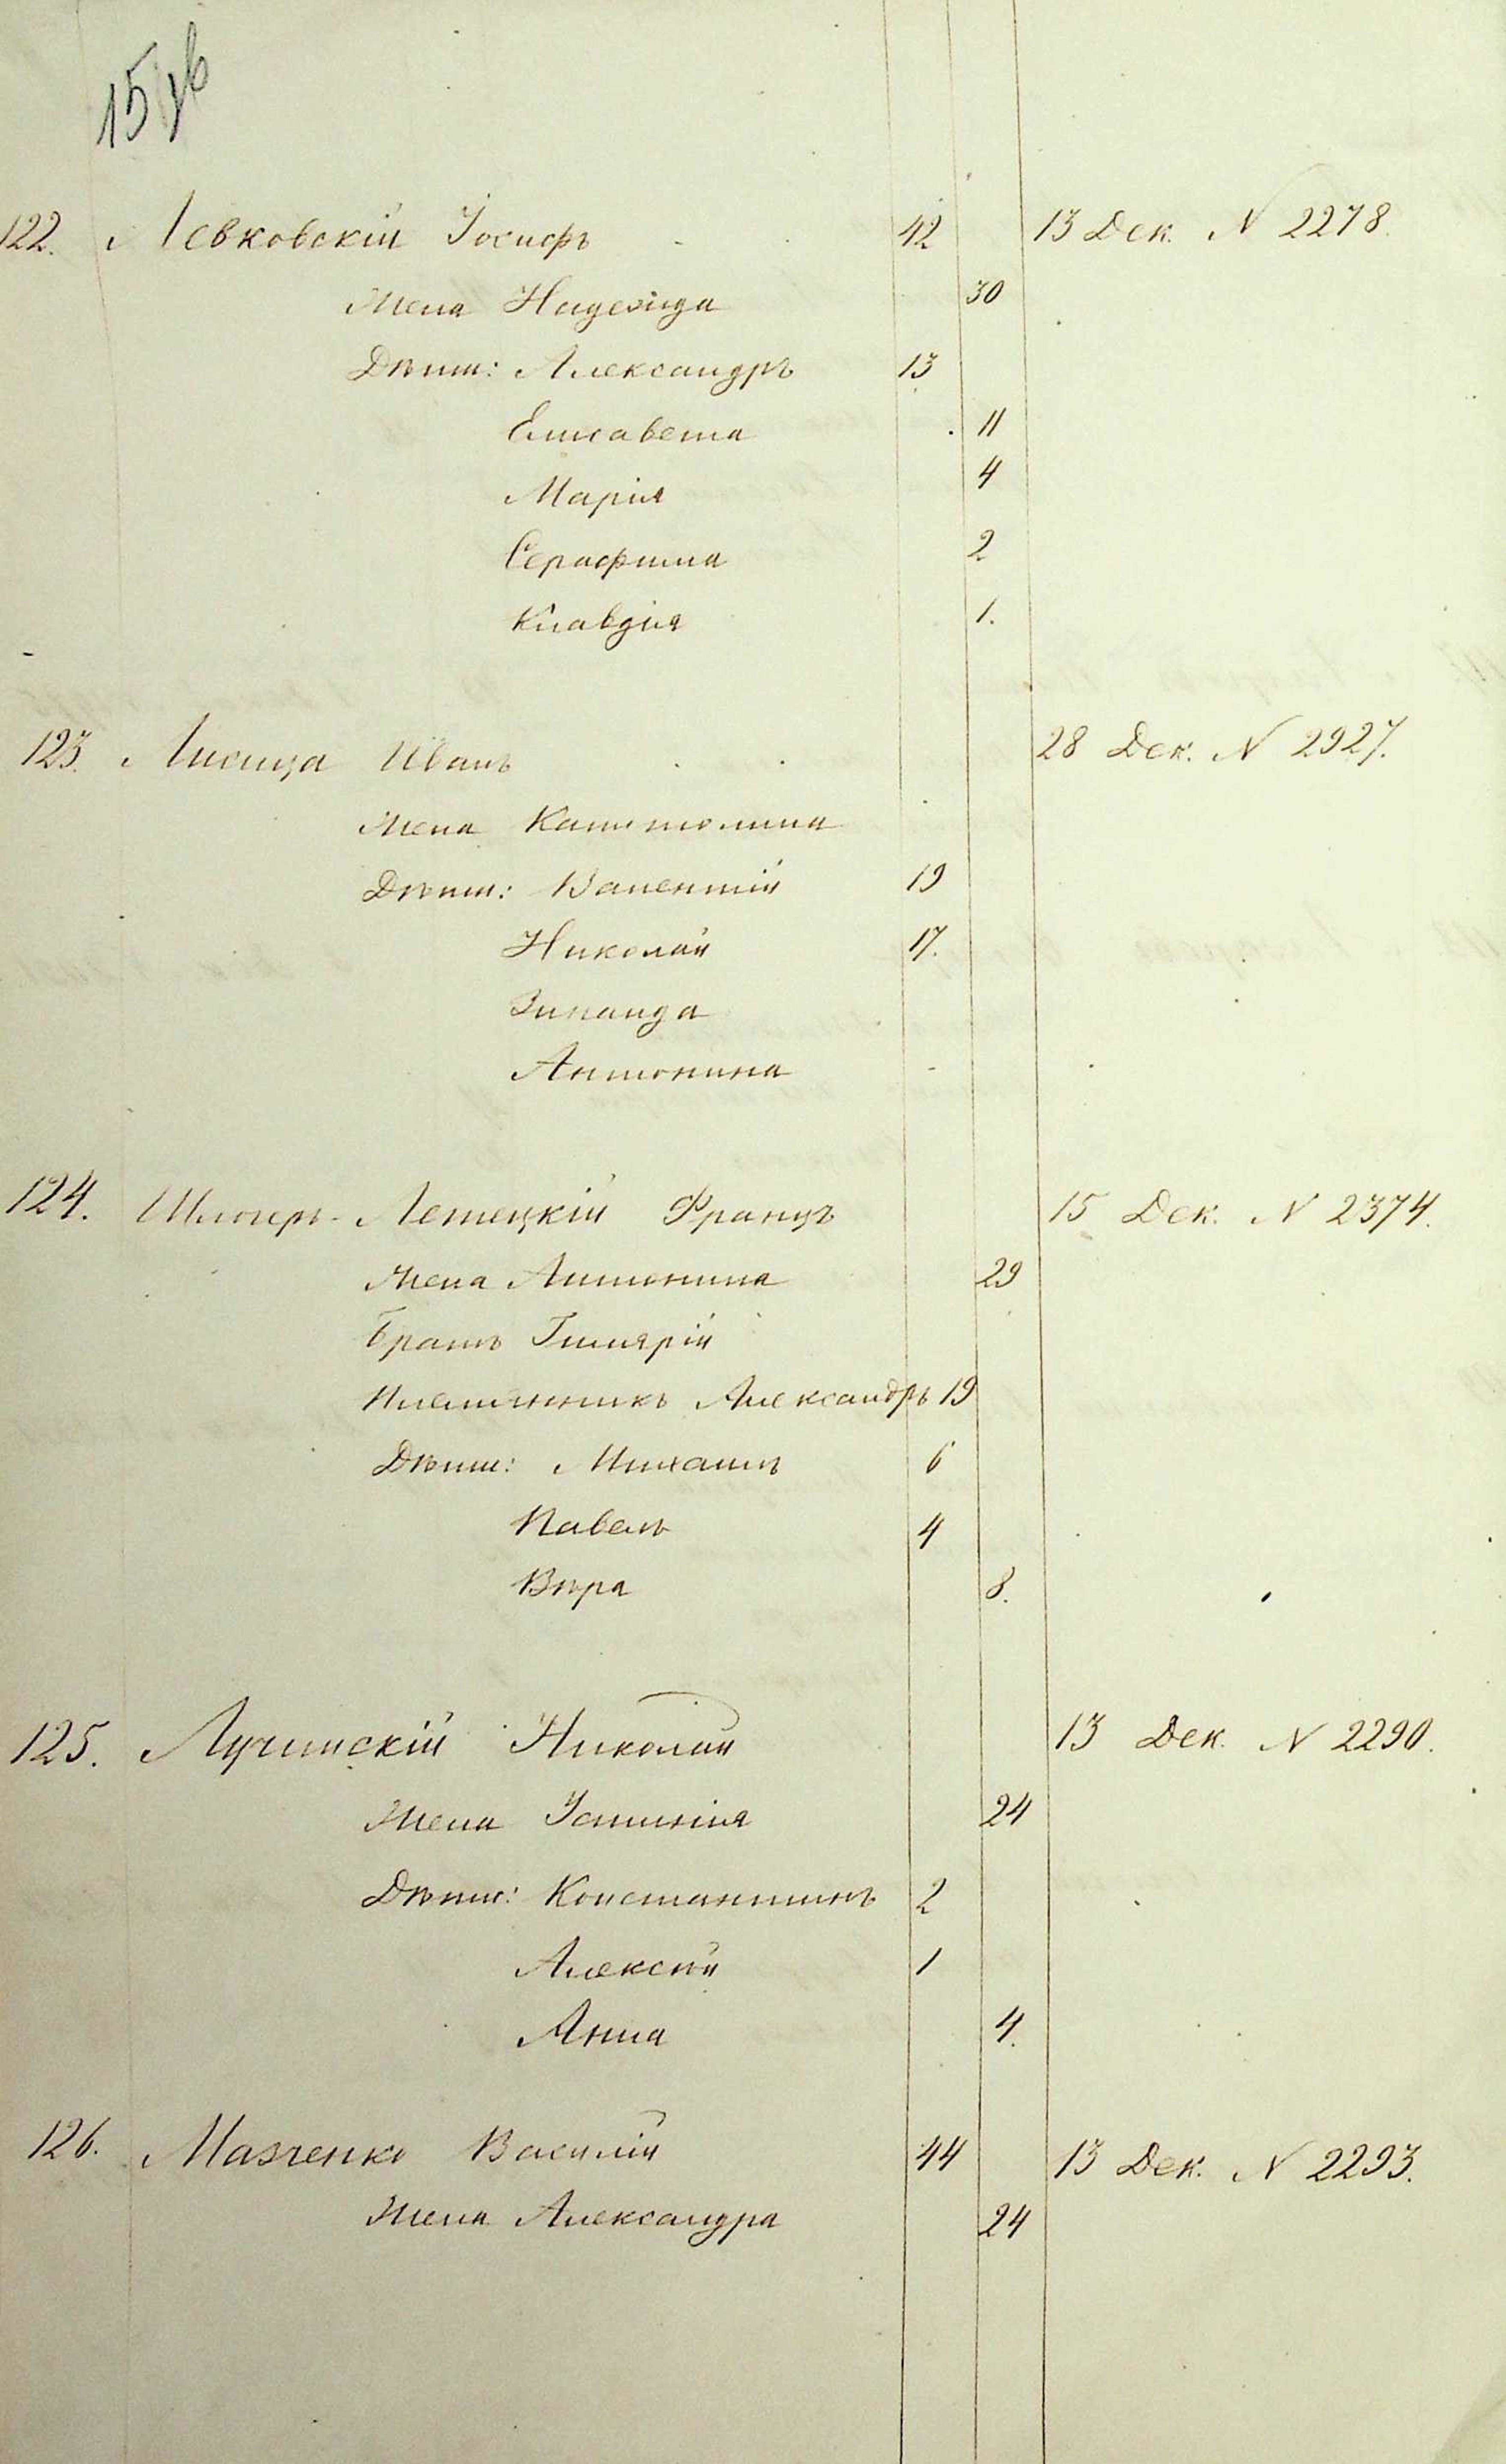 15 об
122. Левковскій Іосифъ 42 13 Дек. N 2278.
Жена Надежда 30
Дѣти: Александръ 13
Елисавета 11
Марія 4
Серафима 2
Клавдія 1.
123. Лисица Иванъ 28 Дек. N 2927.
Жена Капитолина
Дѣти: Валентій 19
Николай 17.
Зинаида
Антонина
124. Шлюгеръ-Летецкій Францъ 15 Дек. N 2374.
Жена Антонина 29
Братъ Гилярій
Племянникъ Александръ 19
Дѣти: Михаилъ 6
Павелъ 4
Вѣра 8.
125. Лучинскій Николай 13 Дек. N 2290.
Жена Устинія 24
Дѣти: Константинъ 2
Алексѣй 1
Анна 4.
126. Мазченко Василій 44 13 Дек. N 2293.
Жена Александра 24